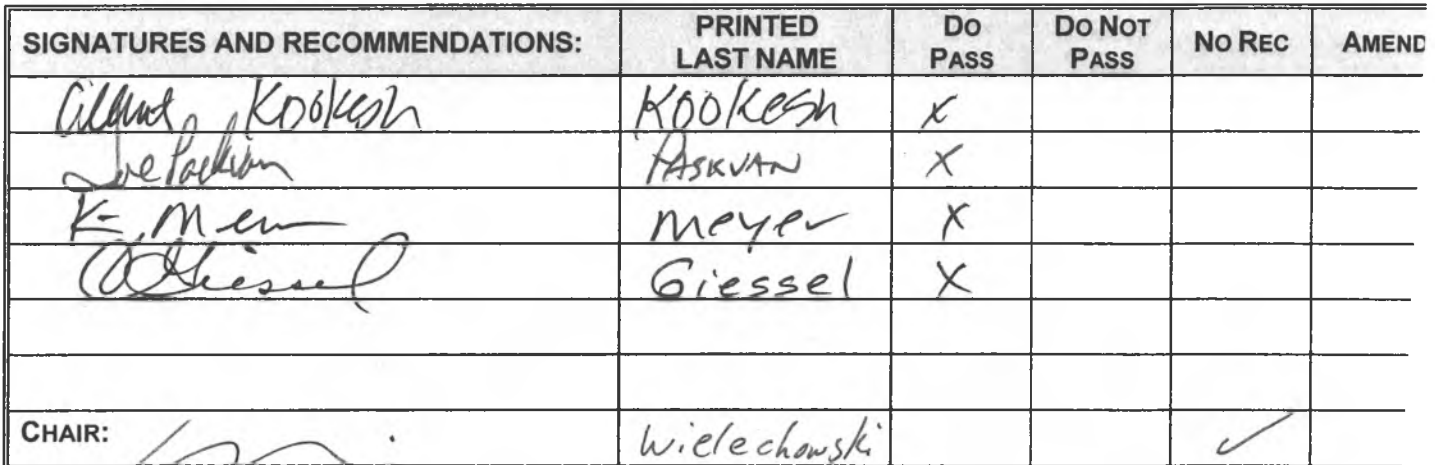 SIGNATURES AND RECOMMENDATIONS: PRINTED LAST NAME DO PASS DO NOT PASS NO REC AMEND
Albert Kookesh Kookesh X
Joe Paskvan PASKVAN X
K. Meyer X
Giessel Giessel X
CHAIR: Wielechowski ✓